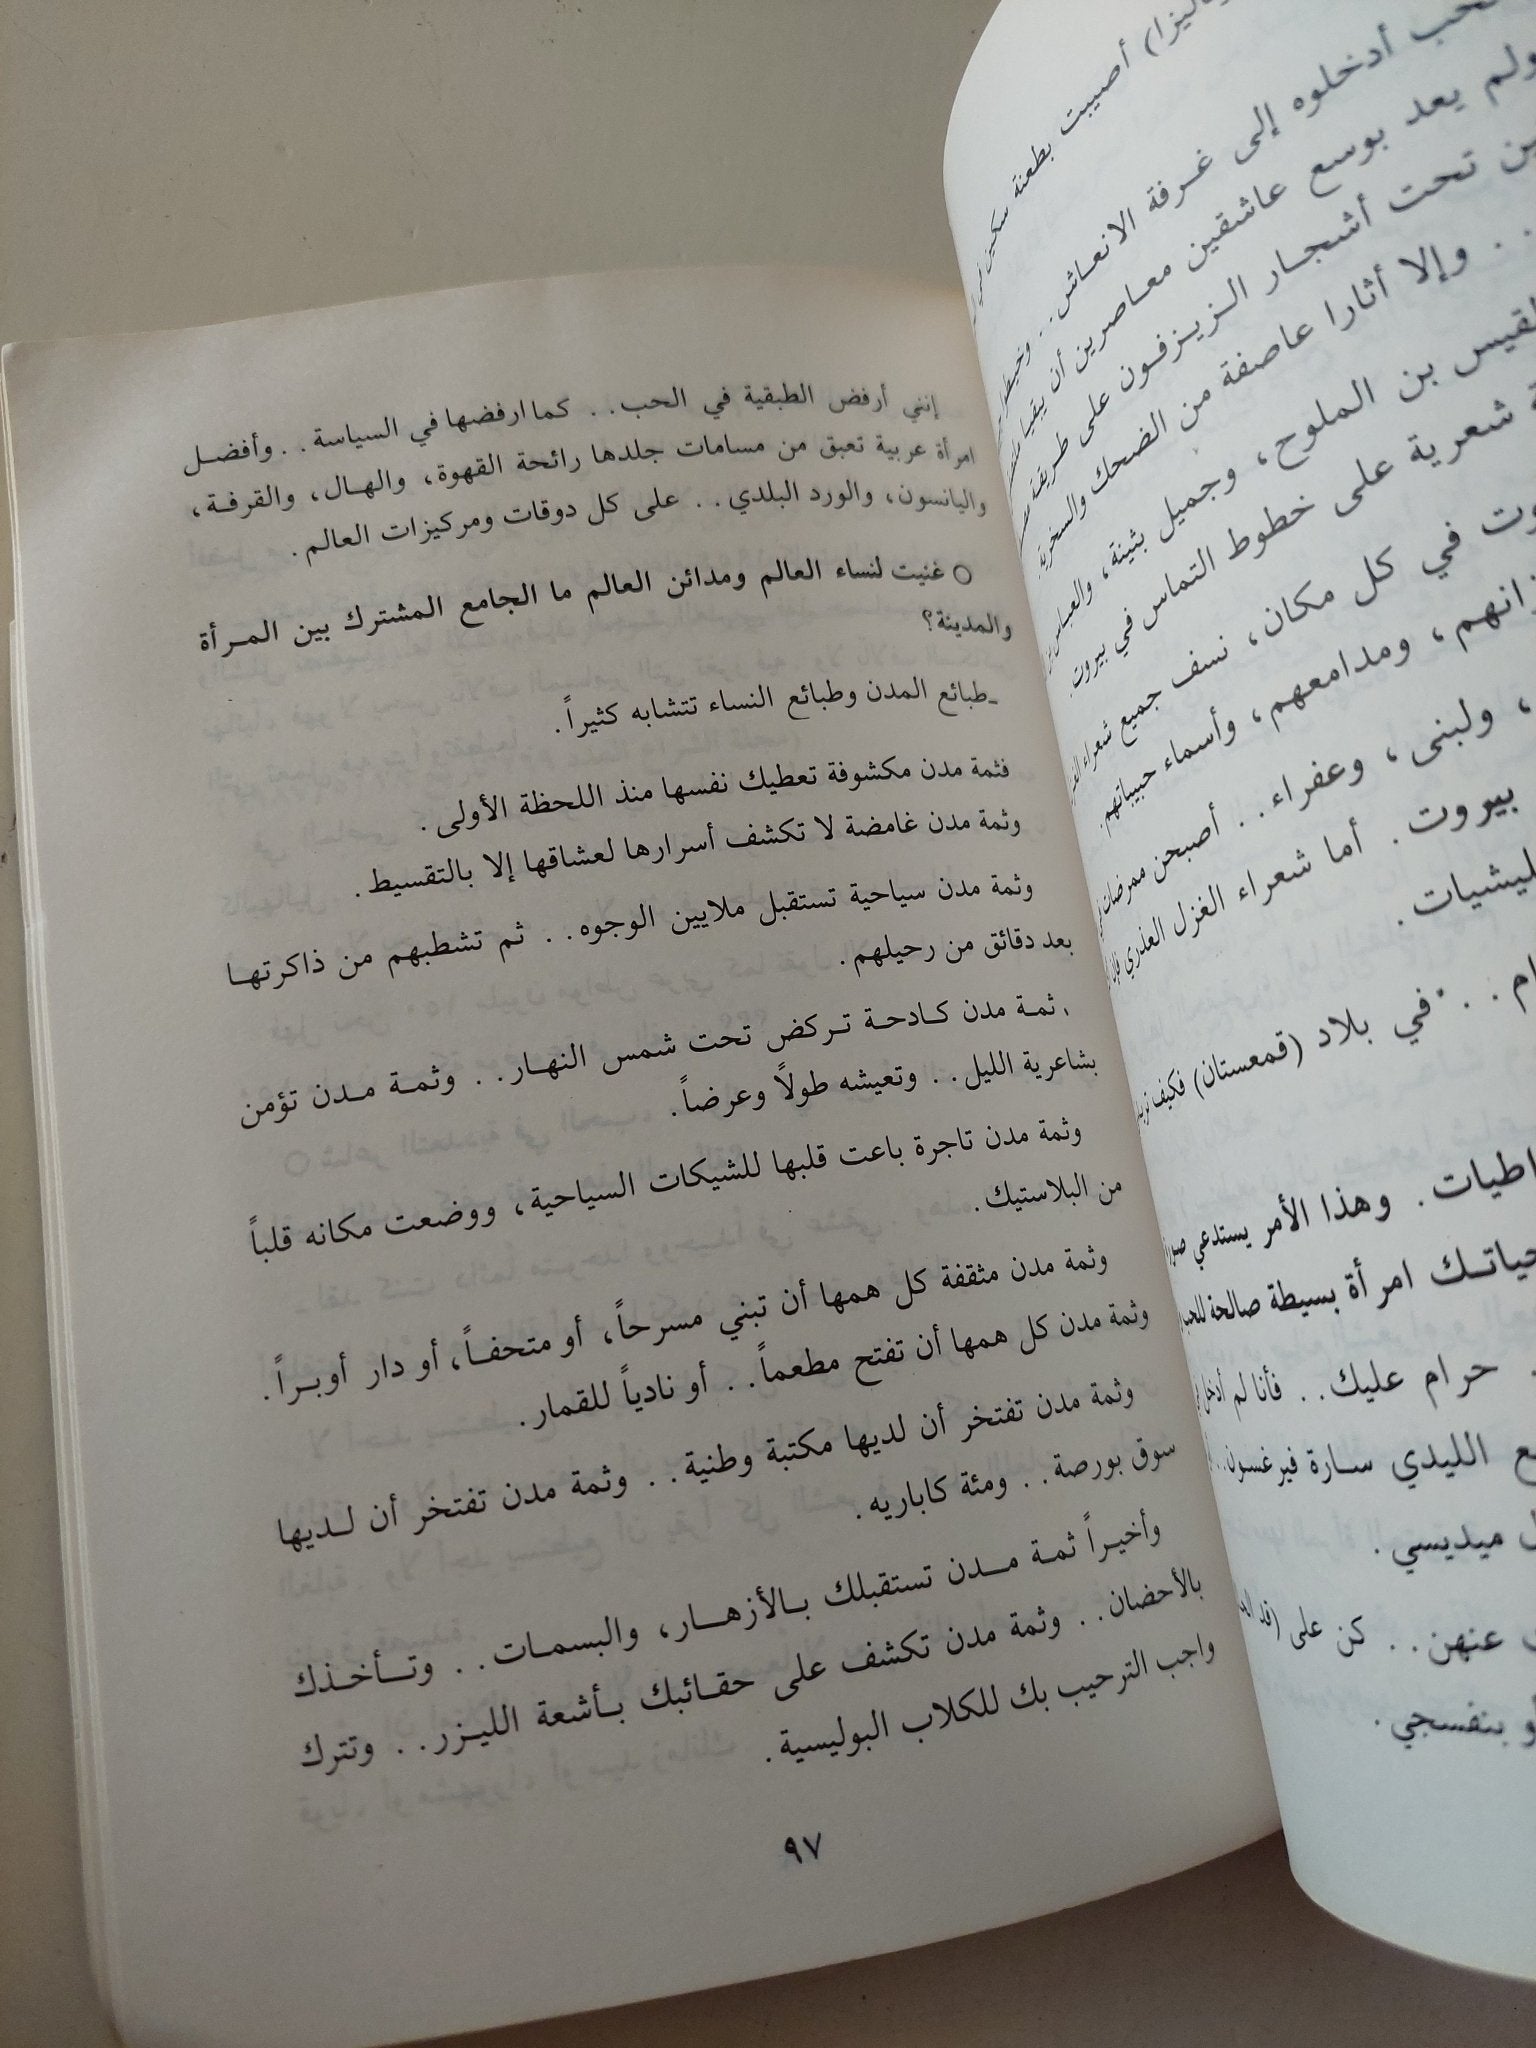 أصيبت بطعنة سكين
أدخلوه إلى غرفة الانعاش . .
ولم يعد بوسع عاشقين معاصرين أن يبقيا
تحت أشجار الزيزفون على طريقة
. . وإلا أثارا عاصفة من الضحك والسخرية .
بن الملوح، وجميل بثينة، والعباس
شعرية على خطوط التماس في بيروت .
في كل مكان، نسف جميع شعراء
ومدامعهم، وأسماء حبيباتهم .
، ولبنى، وعفراء . . أصبحن ممرضات
بيروت . أما شعراء الغزل العذري
. . في بلاد (قمعستان) فكيف
. وهذا الأمر يستدعي
حياتك امرأة بسيطة صالحة
. حرام عليك . . فأنا لم أدخل
الليدي سارة فيرغسون . .
ميديسي .
عنهن . . كن على
بنفسجي .
إنني أرفض الطبقية في الحب . . كما ارفضها في السياسة . . وأفضل
امرأة عربية تعبق من مسامات جلدها رائحة القهوة، والهال، والقرفة،
واليانسون، والورد البلدي . . على كل دوقات ومركيزات العالم .
○ غنيت لنساء العالم ومدائن العالم ما الجامع المشترك بين المرأة
والمدينة؟
ـ طبائع المدن وطبائع النساء تتشابه كثيراً .
فثمة مدن مكشوفة تعطيك نفسها منذ اللحظة الأولى .
وثمة مدن غامضة لا تكشف أسرارها لعشاقها إلا بالتقسيط .
وثمة مدن سياحية تستقبل ملايين الوجوه . . ثم تشطبهم من ذاكرتها
بعد دقائق من رحيلهم .
ثمة مدن كادحة تركض تحت شمس النهار . . وثمة مدن تؤمن
بشاعرية الليل . . وتعيشه طولاً وعرضاً .
وثمة مدن تاجرة باعت قلبها للشيكات السياحية، ووضعت مكانه قلباً
من البلاستيك .
وثمة مدن مثقفة كل همها أن تبني مسرحاً، أو متحفاً، أو دار أوبراً .
وثمة مدن كل همها أن تفتح مطعماً . . أو نادياً للقمار .
وثمة مدن تفتخر أن لديها مكتبة وطنية . . وثمة مدن تفتخر أن لديها
سوق بورصة . . ومئة كاباريه .
وأخيراً ثمة مدن تستقبلك بالأزهار، والبسمات . . وتأخذك
بالأحضان . . وثمة مدن تكشف على حقائبك بأشعة الليزر . . وتترك
واجب الترحيب بك للكلاب البوليسية .
٩٧